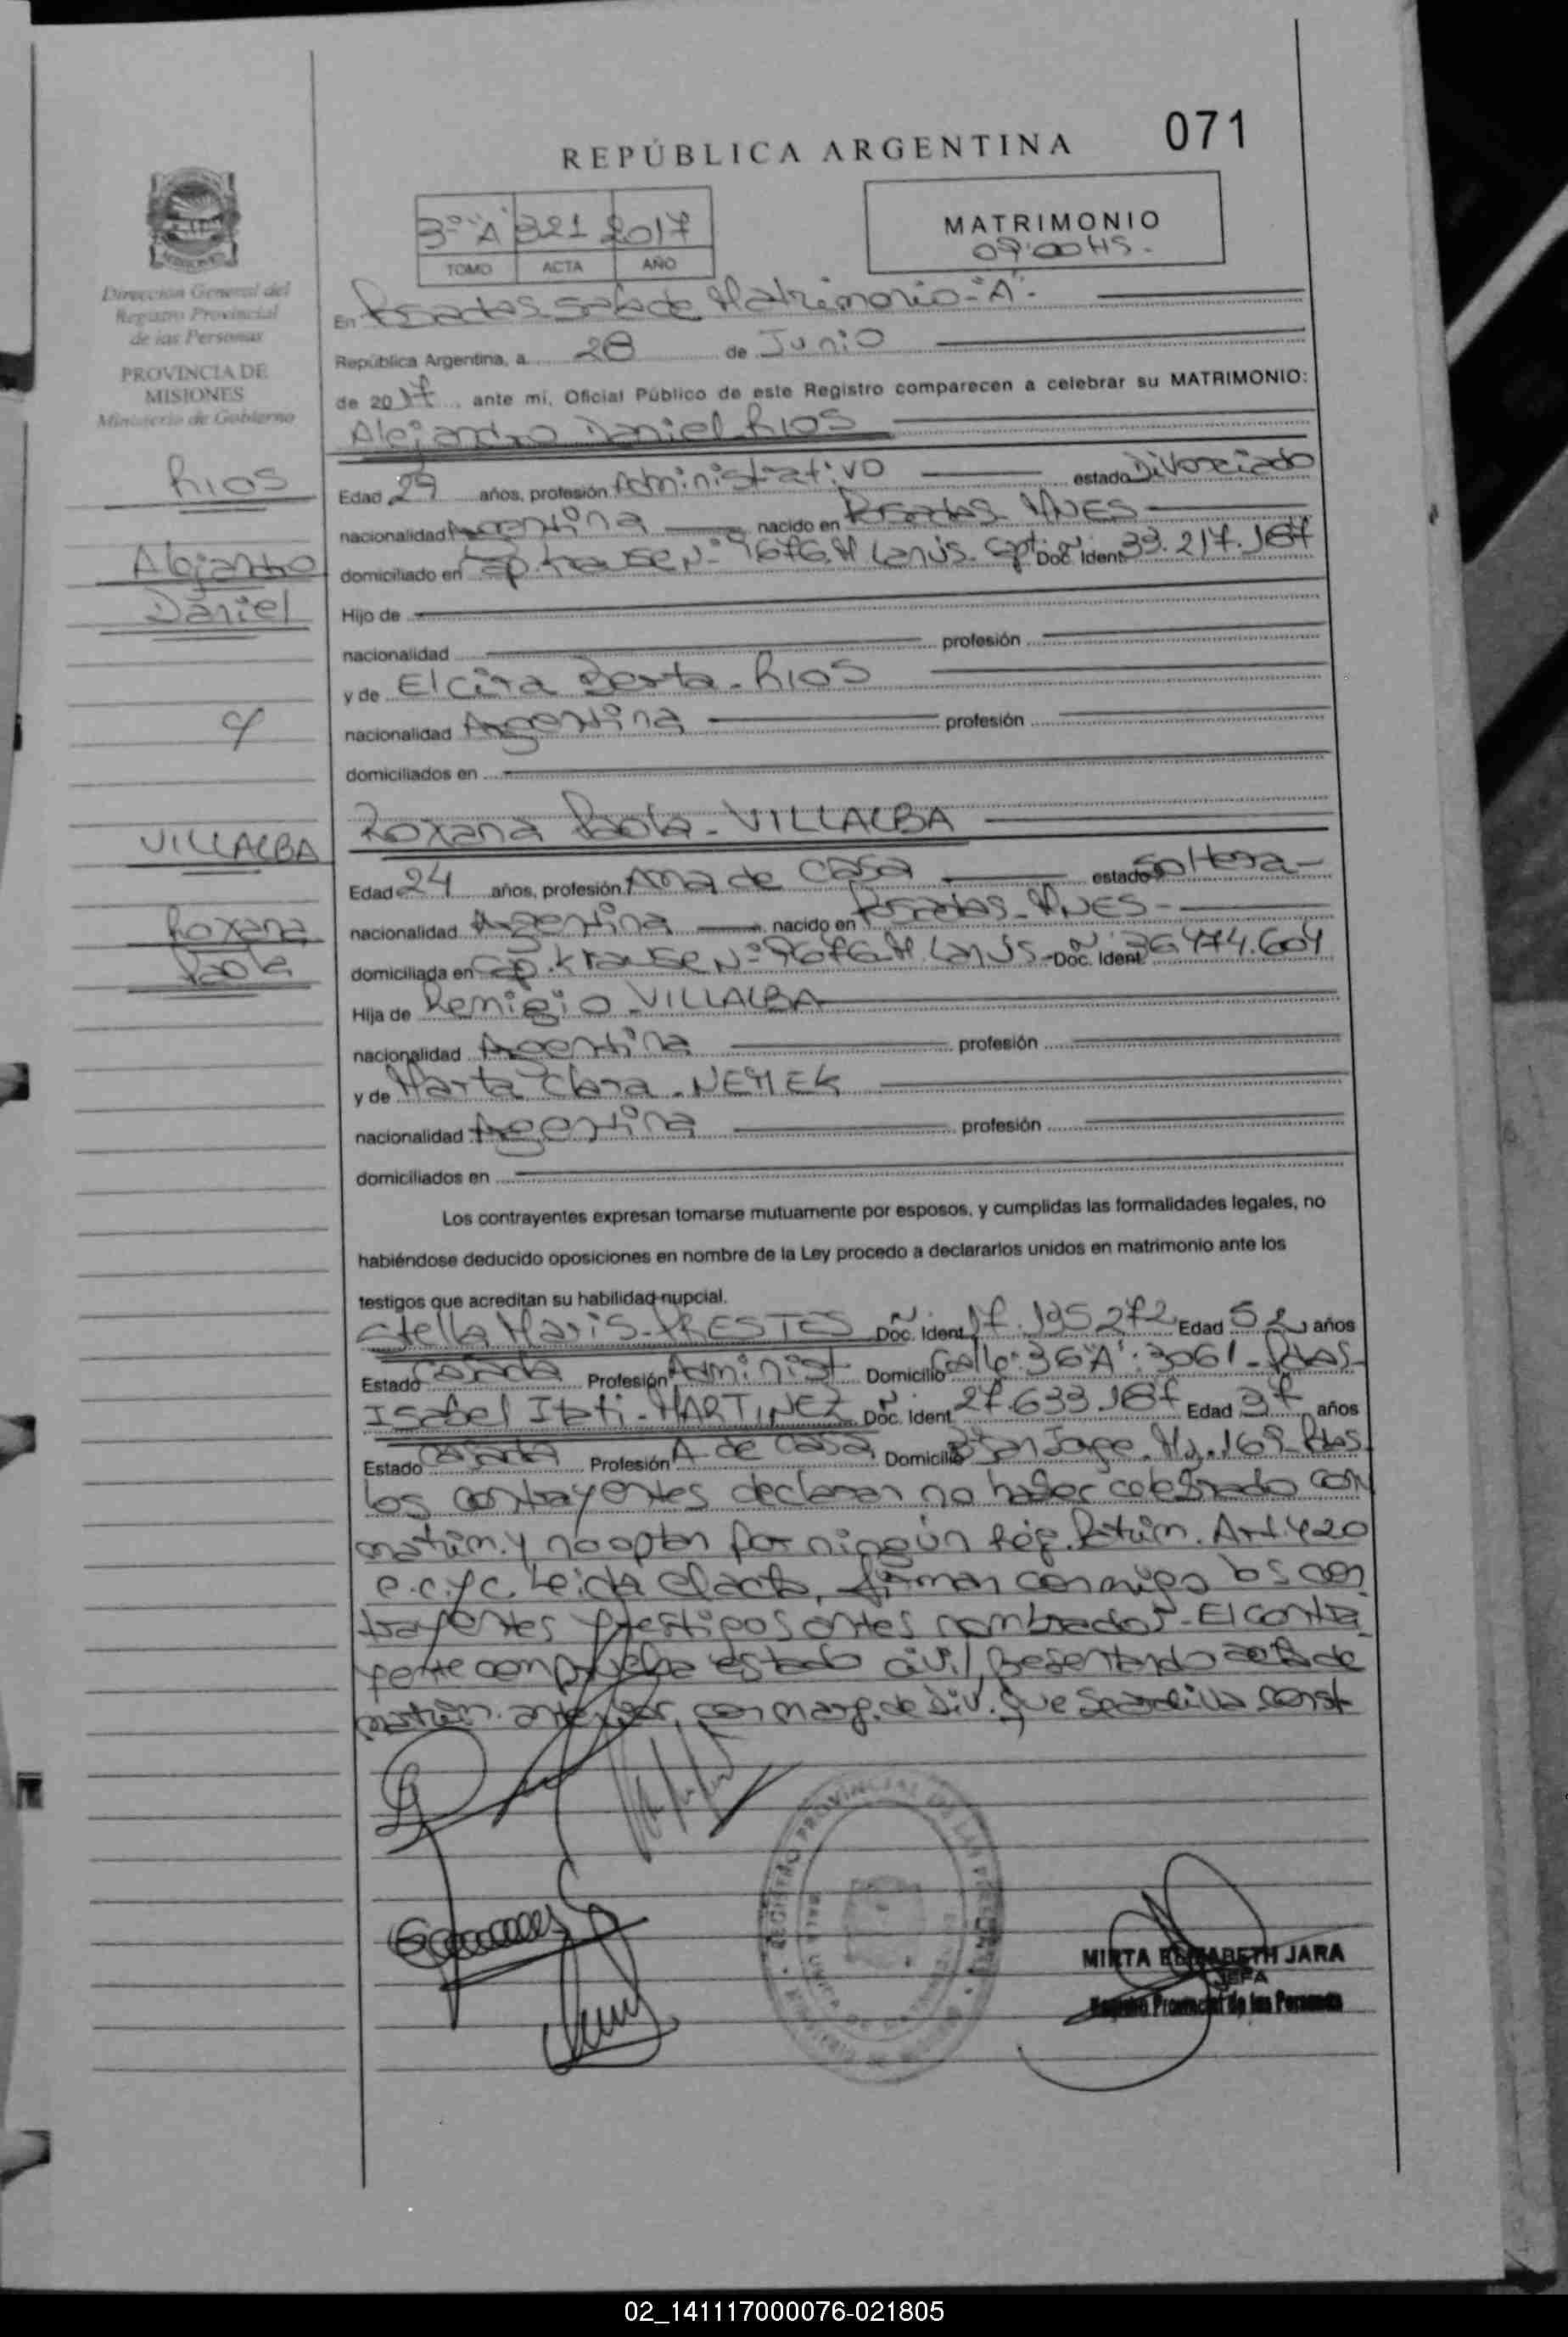 071
REPÚBLICA ARGENTINA
3º "A" 321 2017
TOMO ACTA AÑO
MATRIMONIO
09:00HS.-
Dirección General del
Registro Provincial
de las Personas
PROVINCIA DE
MISIONES
Ministerio de Gobierno
En Posadas Sala de Matrimonio-"A"-
República Argentina, a 28 de Junio
de 2017, ante mí, Oficial Público de este Registro comparecen a celebrar su MATRIMONIO:
Alejandro Daniel RIOS
RIOS
Alejandro
Daniel
Edad 29 años, profesión Administrativo estado Divorciado
nacionalidad Argentina nacido en Posadas MNES
domiciliado en Cap. Krause Nº 9676 M Lanús Doc. Ident. 33.217.187
Hijo de
nacionalidad profesión
y de Elcira Berta - RIOS
nacionalidad Argentina profesión
domiciliados en
y
Roxana Paola - VILLALBA
VILLALBA
Roxana
Paola
Edad 24 años, profesión Ama de Casa estado Soltera-
nacionalidad Argentina nacido en Posadas - MNES-
domiciliada en Cap. Krause Nº 9676 M Lanús - Doc. Ident. 36.474.604
Hija de Remigio - VILLALBA
nacionalidad Argentina profesión
y de Marta Clara - NEMEK
nacionalidad Argentina profesión
domiciliados en
Los contrayentes expresan tomarse mutuamente por esposos, y cumplidas las formalidades legales, no
habiéndose deducido oposiciones en nombre de la Ley procedo a declararlos unidos en matrimonio ante los
testigos que acreditan su habilidad nupcial.
Stella Maris - PRESTES Doc. Ident. 17.195.272 Edad 52 años
Estado Casada Profesión Administ Domicilio Calle: 36 "A": 3061 - Pdas-
Isabel Itati - MARTINEZ Doc. Ident. 27.633.187 Edad 37 años
Estado Casada Profesión A de Casa Domicilio San Jorge. Mz. 169 Pdas.
Los contrayentes declaran no haber celebrado con
matrim. y no optan por ningún Rég. Patrim. Art. 420
e. c. y c. Leida el acta, firman conmigo los con
trayentes y testigos antes nombrados - El contra
yente comprueba estado civil presentando acta de
matrim. anterior, con marg. de Div. que se archiva const
REGISTRO PROVINCIAL DE LAS PERSONAS
MIRTA ELIZABETH JARA
JEFA
Registro Provincial de las Personas
02_141117000076-021805